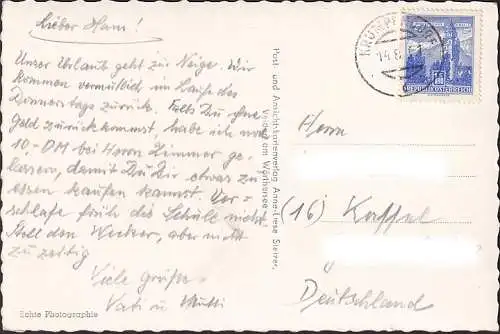 Lieber Hans!
Unser Urlaub geht zu Neige. Wir
kommen vermutlich im Laufe des
Donnerstags zurück. Falls Du ohne
Geld zurückkommst, habe ich noch
10-DM bei Herrn Zimmer ge-
lassen, damit Du Dir etwas zu
essen kaufen kannst. Ver-
schlafe früh die Schule nicht
Stell den Wecker, aber nicht
zu zeitig
Viele Grüße
Vati u Mutti
Echte Photographie
Post- und Ansichtskartenverlag Anne-Liese Steiner,
Velden am Wörthersee
KRUMPENDORF
14.8.
REPUBLIK ÖSTERREICH
Herrn
(16) Kassel
Deutschland